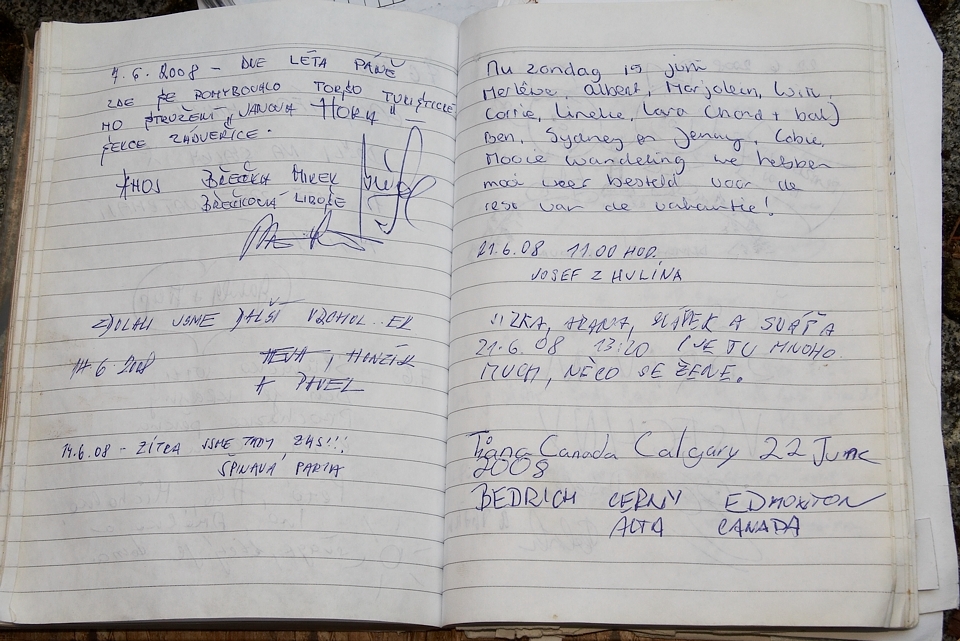 7.6.2008 - DVE LÉTA PÁNĚ
ZDE SE POHYBOVALO TORSO TURISTICKÉ
HO STRUŽENÍ „VANOVA HORA"
SEKCE ZÁDVEŘICE.
AHOJ BŘEČKA MIREK
BŘEČKOVÁ LIBUŠE
ZDOLALI JSME DALŠÍ VRCHOL..EK
14.6 2008 HONZÍK
A PAVEL
14.6.08 - ZÍTRA JSME TADY ZAS!!!
ŠPINAVÁ PARTA
Nu zondag 15 juni
Merlêwe Albert, Marjolein, Wim,
Corrie, Lineke, Lara (hond + bal)
Ben, Sydney en Jenny, Cobie,
Mooie wandeling we hebben
mooi weer besteld voor de
rest van de vakantie!
21.6.08 11.00 HOD.
JOSEF Z HULÍNA
JIZKA, A SVÁŤA
21.6.08 13:20 (JE TU MNOHO
MUCH, NĚCO SE ŽENE.
Jana Canada Calgary 22 June
2008
BEDRICH CERNY EDMONTON
ALTA CANADA